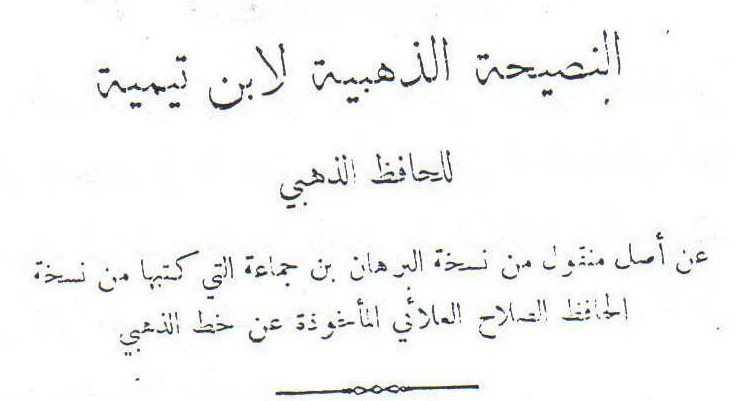 النصيحة الذهبية لابن تيمية
للحافظ الذهبي
عن أصل منقول من نسخة البرهان بن جماعة التي كتبها من نسخة
الحافظ الصلاح العلائي المأخوذة عن خط الذهبي